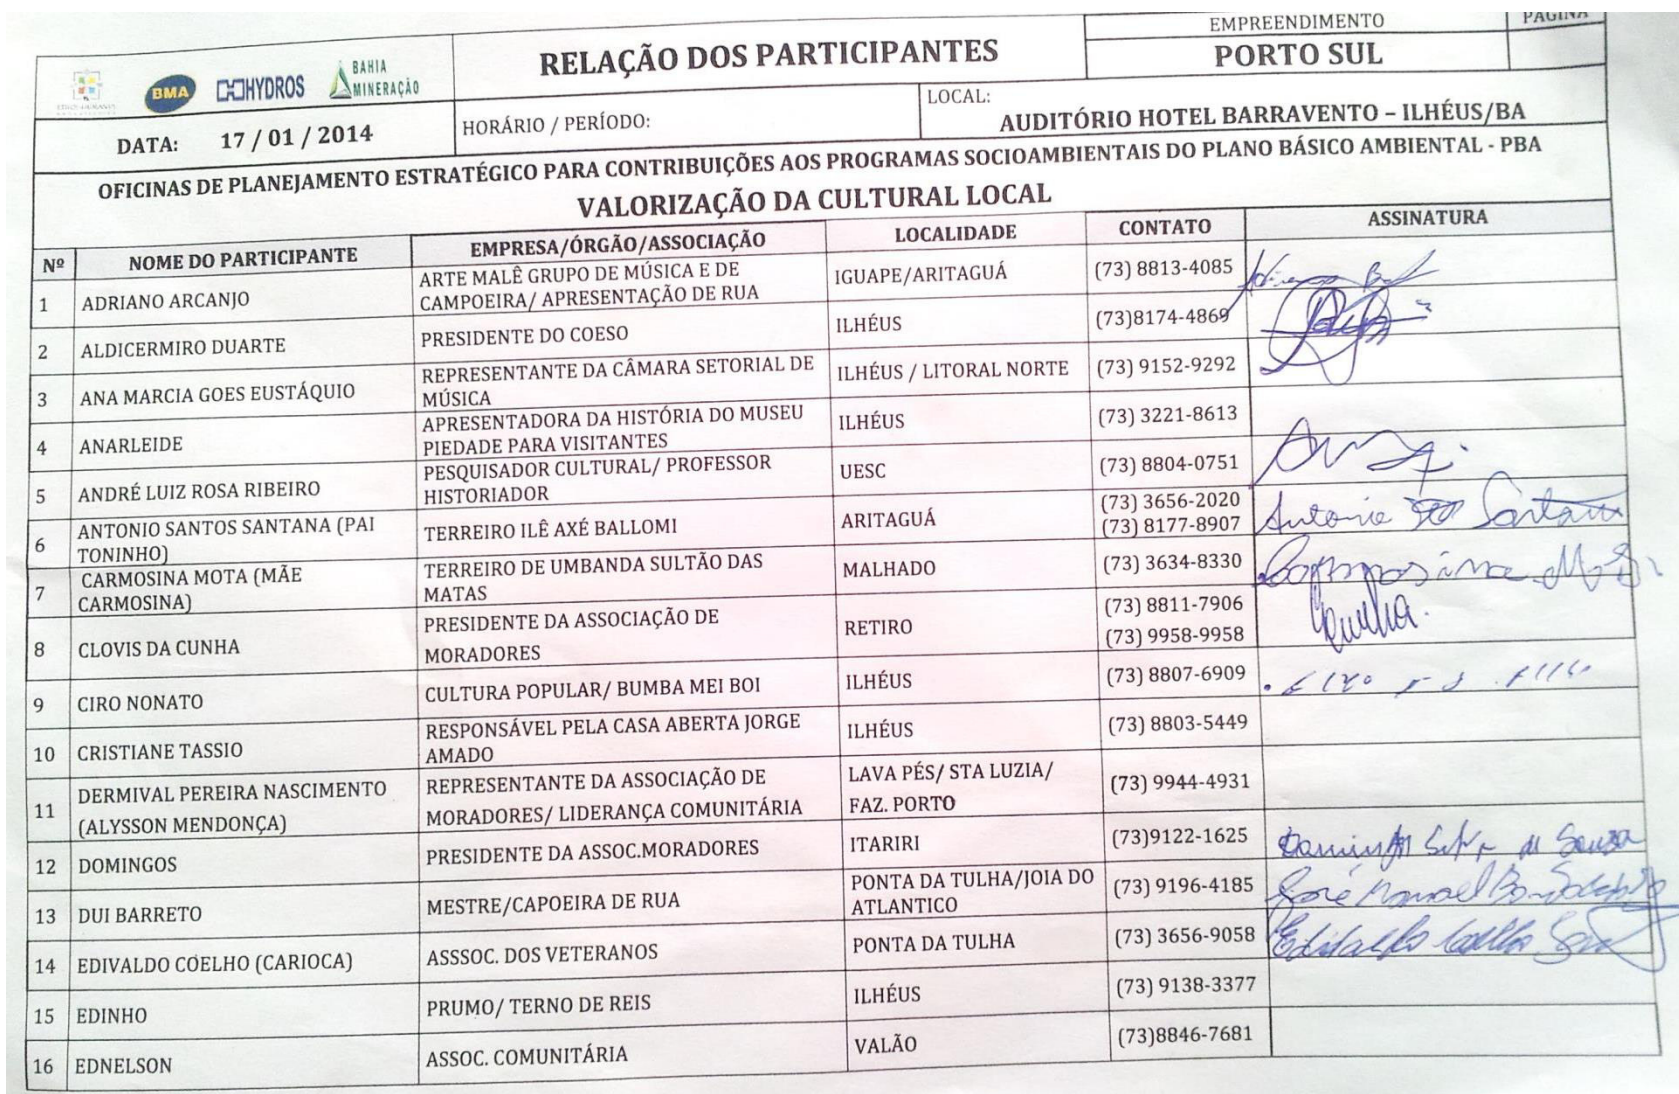 EMPREENDIMENTO
PÁGINA
BMA
HYDROS
BAHIA
MINERAÇÃO
RELAÇÃO DOS PARTICIPANTES
PORTO SUL
DATA: 17 / 01 / 2014
HORÁRIO / PERÍODO:
LOCAL:
AUDITÓRIO HOTEL BARRAVENTO – ILHÉUS/BA
OFICINAS DE PLANEJAMENTO ESTRATÉGICO PARA CONTRIBUIÇÕES AOS PROGRAMAS SOCIOAMBIENTAIS DO PLANO BÁSICO AMBIENTAL - PBA
VALORIZAÇÃO DA CULTURAL LOCAL
Nº NOME DO PARTICIPANTE EMPRESA/ÓRGÃO/ASSOCIAÇÃO LOCALIDADE CONTATO ASSINATURA
1 ADRIANO ARCANJO
ARTE MALÊ GRUPO DE MÚSICA E DE
CAMPOEIRA/ APRESENTAÇÃO DE RUA
IGUAPE/ARITAGUÁ
(73) 8813-4085
2 ALDICERMIRO DUARTE
PRESIDENTE DO COESO
ILHÉUS
(73)8174-4869
3 ANA MARCIA GOES EUSTÁQUIO
REPRESENTANTE DA CÂMARA SETORIAL DE
MÚSICA
ILHÉUS / LITORAL NORTE
(73) 9152-9292
4 ANARLEIDE
APRESENTADORA DA HISTÓRIA DO MUSEU
PIEDADE PARA VISITANTES
ILHÉUS
(73) 3221-8613
5 ANDRÉ LUIZ ROSA RIBEIRO
PESQUISADOR CULTURAL/ PROFESSOR
HISTORIADOR
UESC
(73) 8804-0751
6 ANTONIO SANTOS SANTANA (PAI
TONINHO)
TERREIRO ILÊ AXÉ BALLOMI
ARITAGUÁ
(73) 3656-2020
(73) 8177-8907
Antonio Santana
7 CARMOSINA MOTA (MÃE
CARMOSINA)
TERREIRO DE UMBANDA SULTÃO DAS
MATAS
MALHADO
(73) 3634-8330
Carmosina
8 CLOVIS DA CUNHA
PRESIDENTE DA ASSOCIAÇÃO DE
MORADORES
RETIRO
(73) 8811-7906
(73) 9958-9958
Cunha.
9 CIRO NONATO
CULTURA POPULAR/ BUMBA MEI BOI
ILHÉUS
(73) 8807-6909
10 CRISTIANE TASSIO
RESPONSÁVEL PELA CASA ABERTA JORGE
AMADO
ILHÉUS
(73) 8803-5449
11 DERMIVAL PEREIRA NASCIMENTO
(ALYSSON MENDONÇA)
REPRESENTANTE DA ASSOCIAÇÃO DE
MORADORES/ LIDERANÇA COMUNITÁRIA
LAVA PÉS/ STA LUZIA/
FAZ. PORTO
(73) 9944-4931
12 DOMINGOS
PRESIDENTE DA ASSOC.MORADORES
ITARIRI
(73)9122-1625
de Souza
13 DUI BARRETO
MESTRE/CAPOEIRA DE RUA
PONTA DA TULHA/JOIA DO
ATLANTICO
(73) 9196-4185
José Manoel
14 EDIVALDO COELHO (CARIOCA)
ASSSOC. DOS VETERANOS
PONTA DA TULHA
(73) 3656-9058
Edivaldo Coelho
15 EDINHO
PRUMO/ TERNO DE REIS
ILHÉUS
(73) 9138-3377
16 EDNELSON
ASSOC. COMUNITÁRIA
VALÃO
(73)8846-7681